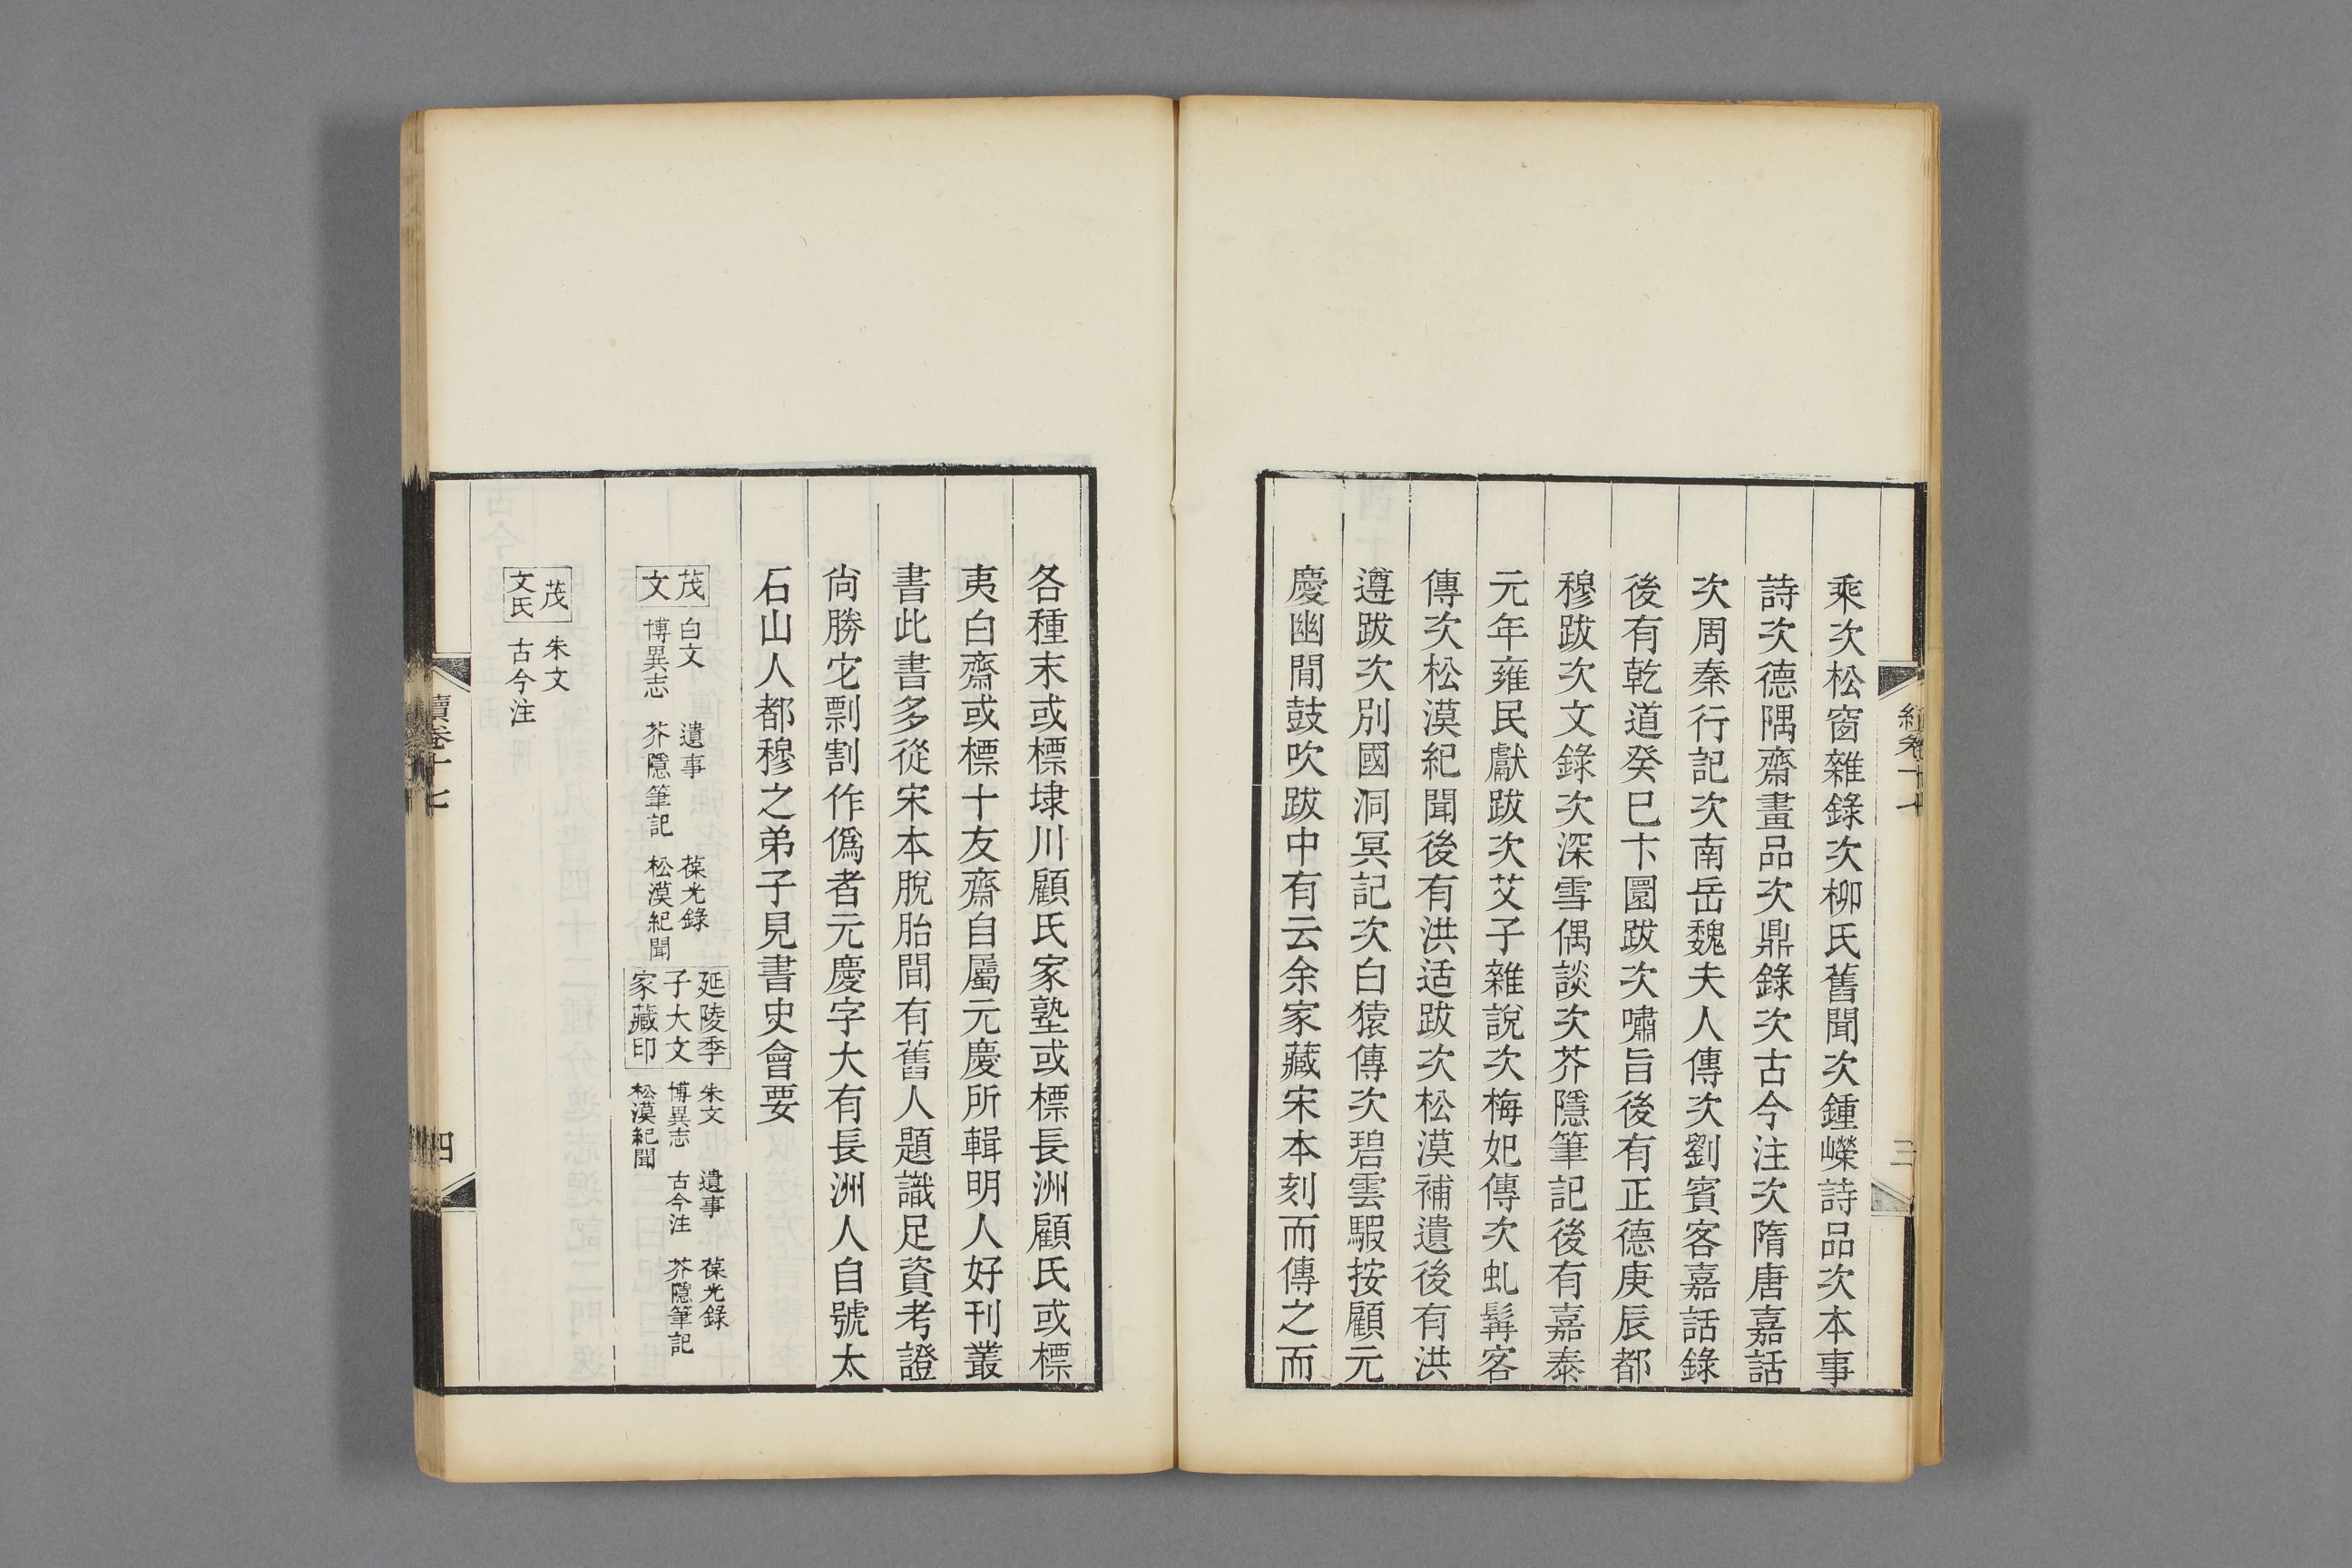 乘次松窗雜錄次柳氏舊聞次鍾嶸詩品次本事
詩次德隅齋畫品次鼎錄次古今注次隋唐嘉話
次周秦行記次南岳魏夫人傳次劉賓客嘉話錄
後有乾道癸巳卞圜跋次嘯旨後有正德庚辰都
穆跋次文錄次深雪偶談次芥隱筆記後有嘉泰
元年雍民獻跋次艾子雜說次梅妃傳次虬髯客
傳次松漠紀聞後有洪适跋次松漠補遺後有洪
遵跋次別國洞冥記次白猿傳次碧雲騢按顧元
慶幽閒鼓吹跋中有云余家藏宋本刻而傳之而
三
各種末或標埭川顧氏家塾或標長洲顧氏或標
夷白齋或標十友齋自屬元慶所輯明人好刊叢
書此書多從宋本脫胎間有舊人題識足資考證
尚勝它剽割作僞者元慶字大有長洲人自號太
石山人都穆之弟子見書史會要
茂文
白文
博異志
遺事
芥隱筆記
葆光錄
松漠紀聞
延陵季
子大文
家藏印
朱文
博異志
松漠紀聞
遺事
古今注
葆光錄
芥隱筆記
茂
文氏
朱文
古今注
續卷十七
四